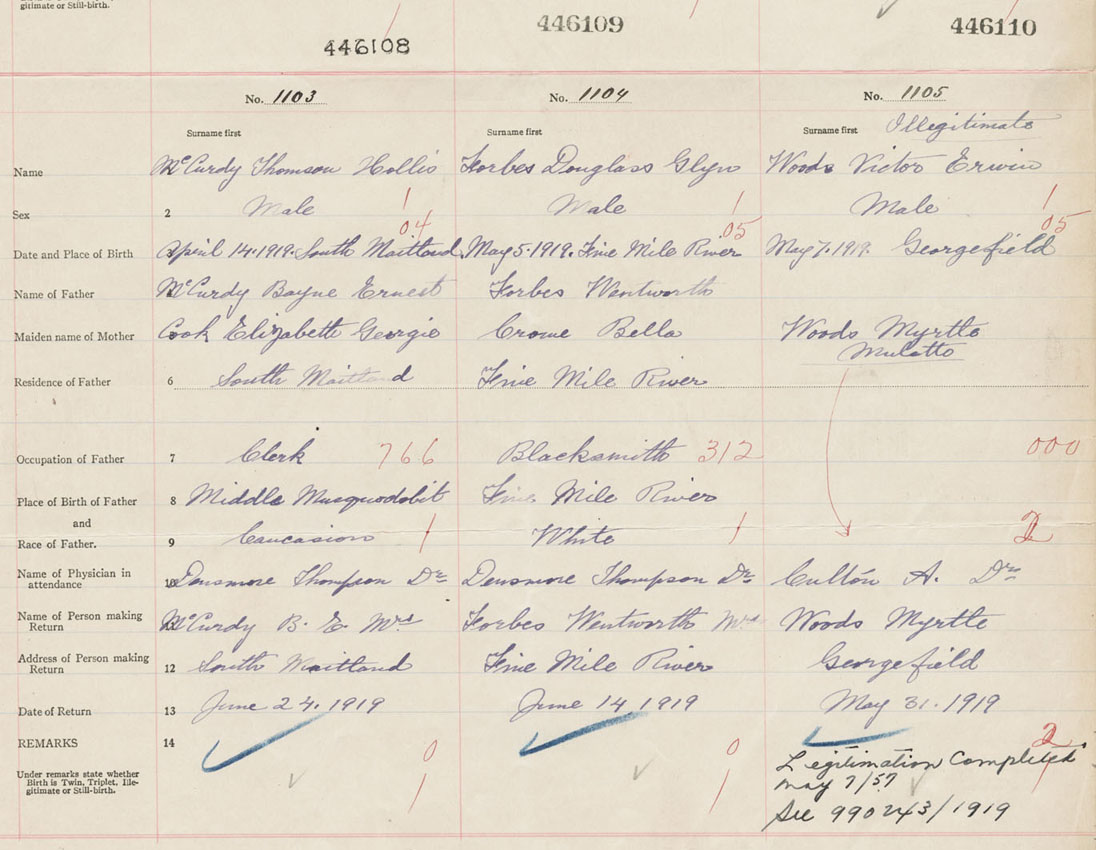 gitimate or Still-birth.
446108 446109 446110
No. 1103 No. 1104 No. 1105
Surname first Surname first Surname first Illegitimate
Name McCurdy Thomson Hollis Forbes Douglass Glyn Woods Victor Erwin
Sex 2 Male 1 Male 1 Male 1
04 05 05
Date and Place of Birth April 14.1919. South Maitland May 5.1919. Five Mile River May 7.1919. Georgefield
Name of Father McCurdy Bayne Ernest Forbes Wentworth
Maiden name of Mother Cook Elizabeth Georgie Crowe Bella Woods Myrtle
Mulatto
Residence of Father 6 South Maitland Five Mile River
Occupation of Father 7 Clerk 766 Blacksmith 312 000
Place of Birth of Father 8 Middle Musquodobit Five Mile River
and
Race of Father. 9 Caucasion 1 White 1 2
Name of Physician in
attendance 10 Densmore Thompson Dr Densmore Thompson Dr Culton A. Dr
Name of Person making
Return McCurdy B. E. Mrs Forbes Wentworth Mrs Woods Myrtle
Address of Person making
Return 12 South Maitland Five Mile River Georgefield
Date of Return 13 June 24.1919 June 14.1919 May 31.1919
REMARKS 14 0 0 2
Legitimation Completed
Under remarks state whether
Birth is Twin, Triplet, Ille-
gitimate or Still-birth. 1 1 May 7/57
See 990243/1919